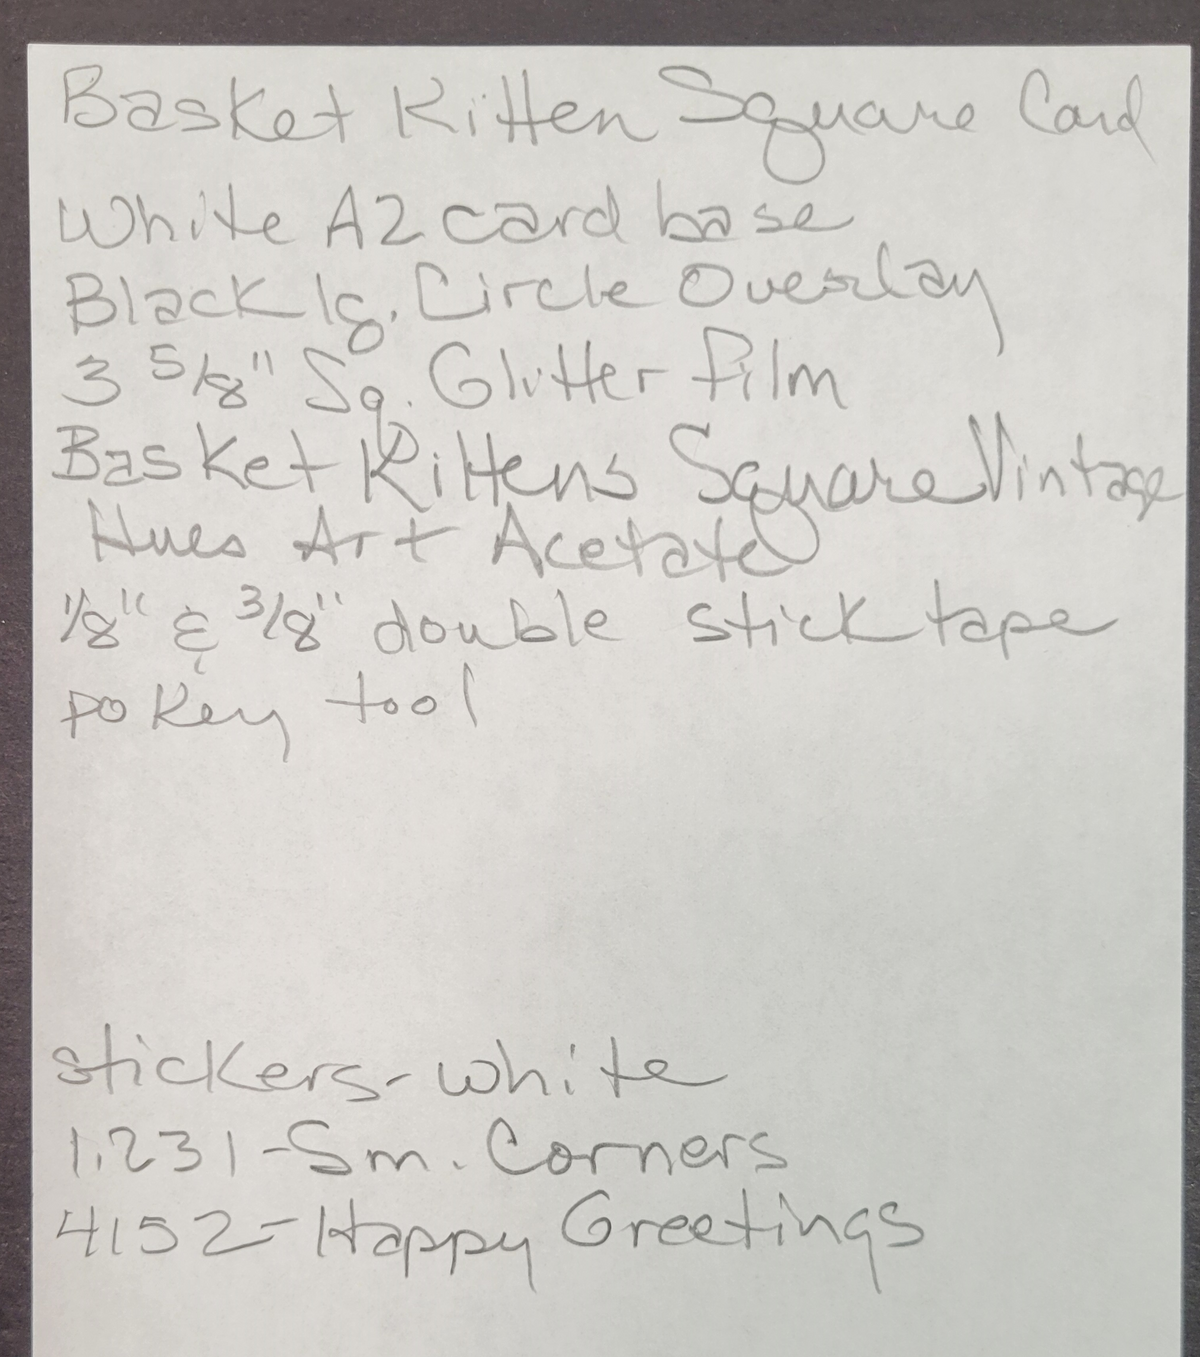 Basket Kitten Square Card
White A2 card base
Black lg. Circle Overlay
3 5/8" Sq. Glitter Film
Basket Kittens Square Vintage
Hues Art Acetate
1/8" & 3/8" double stick tape
pokey tool
stickers-white
1.231-Sm. Corners
4152-Happy Greetings